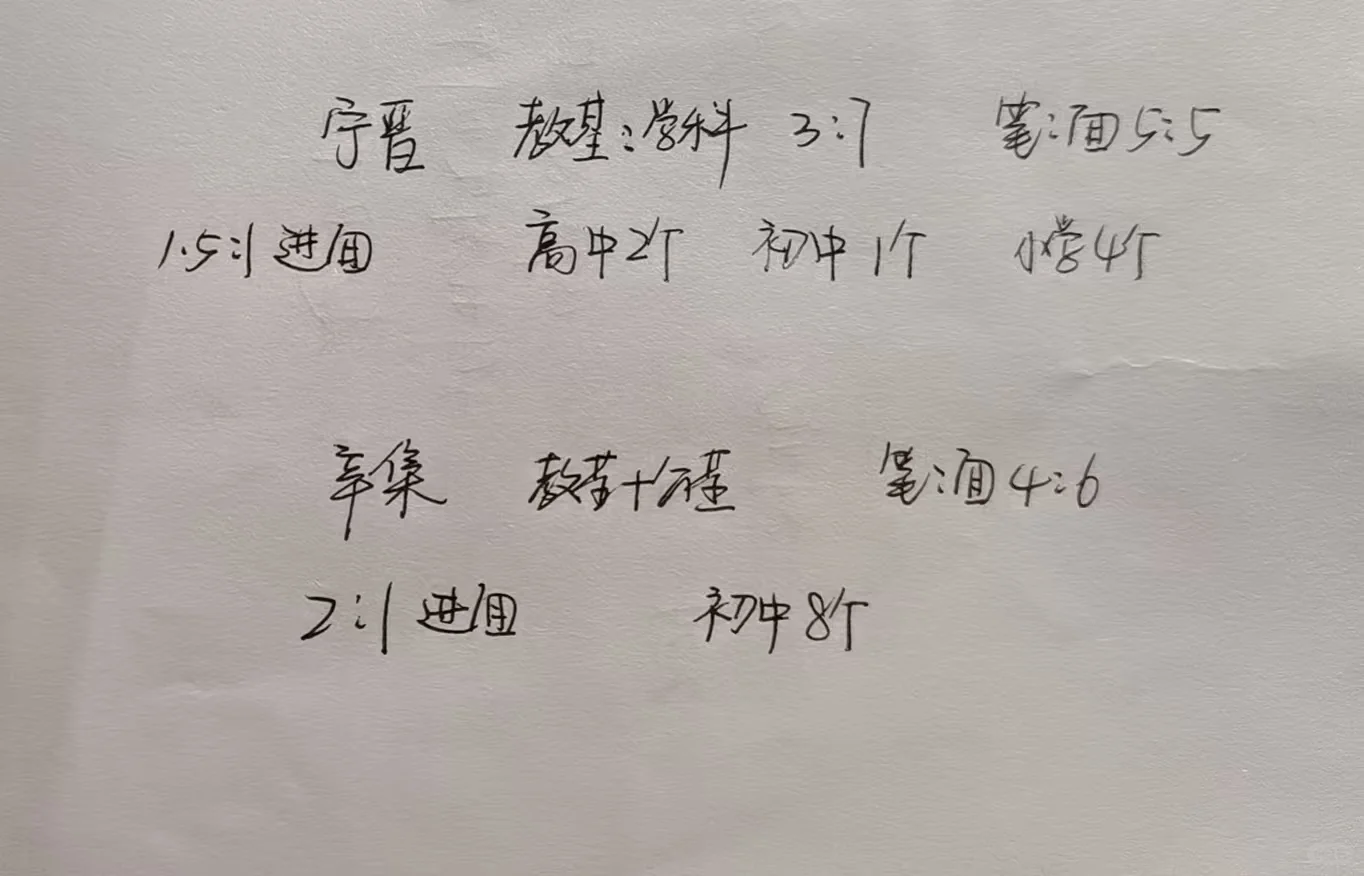 宁晋 教基:学科 3:7 笔:面 5:5
1.5:1 进面 高中2个 初中1个 小学4个
辛集 教基+公基 笔:面 4:6
2:1 进面 初中8个